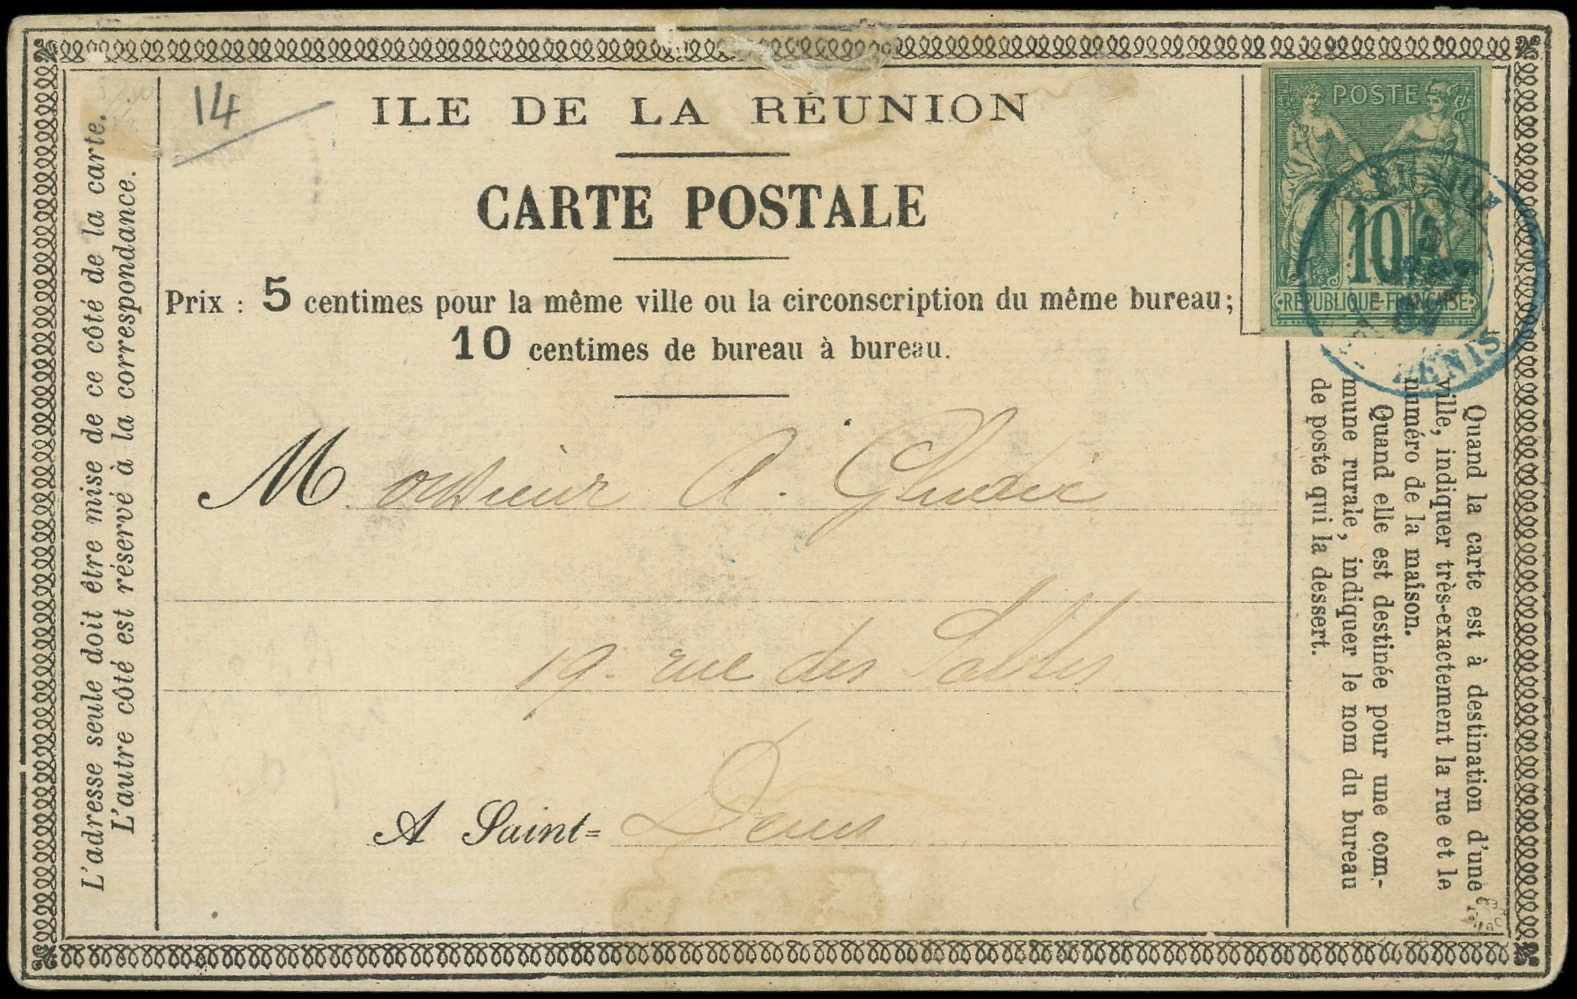 14
ILE DE LA RÉUNION
CARTE POSTALE
Prix : 5 centimes pour la même ville ou la circonscription du même bureau;
10 centimes de bureau à bureau.
POSTE
10
RÉPUBLIQUE FRANÇAISE
DENIS
Monsieur A.
19 rue des Sables
A Saint=Denis
L'adresse seule doit être mise de ce côté de la carte.
L'autre côté est réservé à la correspondance.
Quand la carte est à destination d'une
ville, indiquer très-exactement la rue et le
numéro de la maison.
Quand elle est destinée pour une com-
mune rurale, indiquer le nom du bureau
de poste qui la dessert.